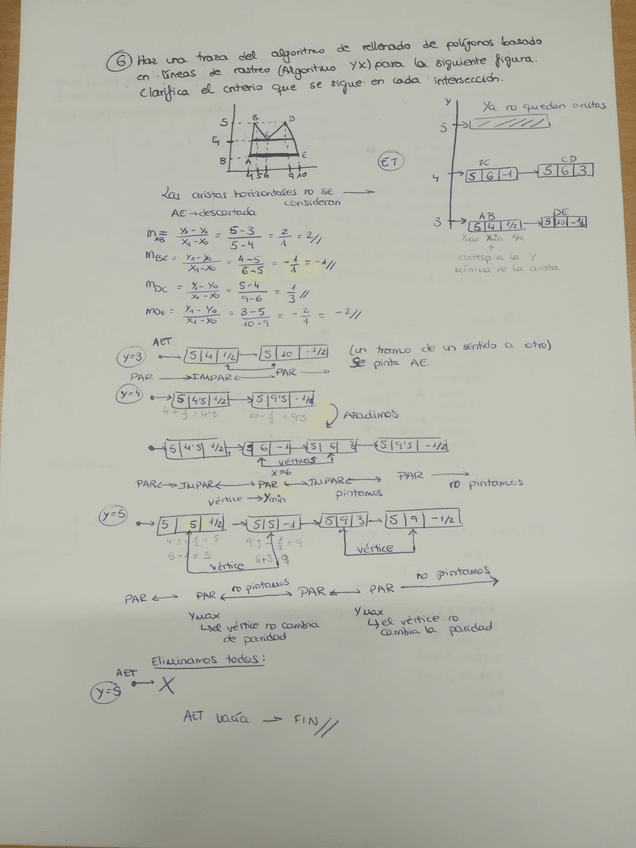 6 Haz una traza del algoritmo de rellenado de polígonos basado
en líneas de rastreo (Algoritmo YX) para la siguiente figura.
Clarifica el criterio que se sigue en cada intersección.
5 B D
4 C
B A E
4 5 6 9 10
ET
y
5 Ya no quedan aristas
4 BC 5 6 -1 CD 5 6 3
3 AB 5 4 1/2 DE 5 10 -1/2
ymax xmin 1/m
corresp a la y
mínima de la arista
Las aristas horizontales no se consideran
AE → descartada
mAB = y1 - y0 / x1 - x0 = 5-3 / 5-4 = 2/1 = 2//
mBC = y1 - y0 / x1 - x0 = 4-5 / 6-5 = -1/1 = -1//
mDC = y1 - y0 / x1 - x0 = 5-4 / 9-6 = 1/3 //
mDE = y1 - y0 / x1 - x0 = 3-5 / 10-9 = -2/1 = -2//
AET
y=3 5 4 1/2 → 5 10 -1/2 (un tramo de un sentido a otro)
Se pinta AE
PAR IMPAR PAR
y=4 5 4'5 1/2 → 5 9'5 -1/2
4 + 1/2 = 4'5 10 - 1/2 = 9'5
Añadimos
5 4'5 1/2 5 6 -1 5 6 3 5 9'5 -1/2
vértices
x=6
PAR IMPAR PAR IMPAR PAR no pintamos
vértice → ymin pintamos
y=5 5 5 1/2 → 5 5 -1 → 5 9 3 → 5 9 -1/2
4'5 + 1/2 = 5 9'5 - 1/2 = 9
6 - 1 = 5 6+3 = 9
vértice vértice
PAR PAR no pintamos PAR PAR no pintamos
ymax ymax
↳ el vértice no cambia de paridad
↳ el vértice no cambia la paridad
Eliminamos todos:
AET
y=5 X
AET vacía → FIN//